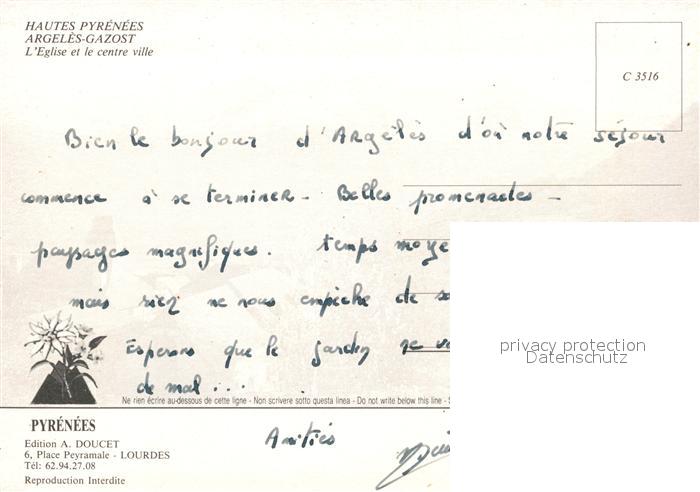 HAUTES PYRÉNÉES
ARGELÈS-GAZOST
L'Eglise et le centre ville
C 3516
Bien le bonjour d'Argelès d'où notre séjour
commence à se terminer - Belles promenades -
paysages magnifiques. temps
mais rien ne nous empêche de
Esperons que le jardin
de mal...
privacy protection
Datenschutz
Ne rien écrire au-dessous de cette ligne - Non scrivere sotto questa linea - Do not write below this line -
PYRÉNÉES
Amitiés
Edition A. DOUCET
6, Place Peyramale - LOURDES
Tél: 62.94.27.08
Reproduction Interdite